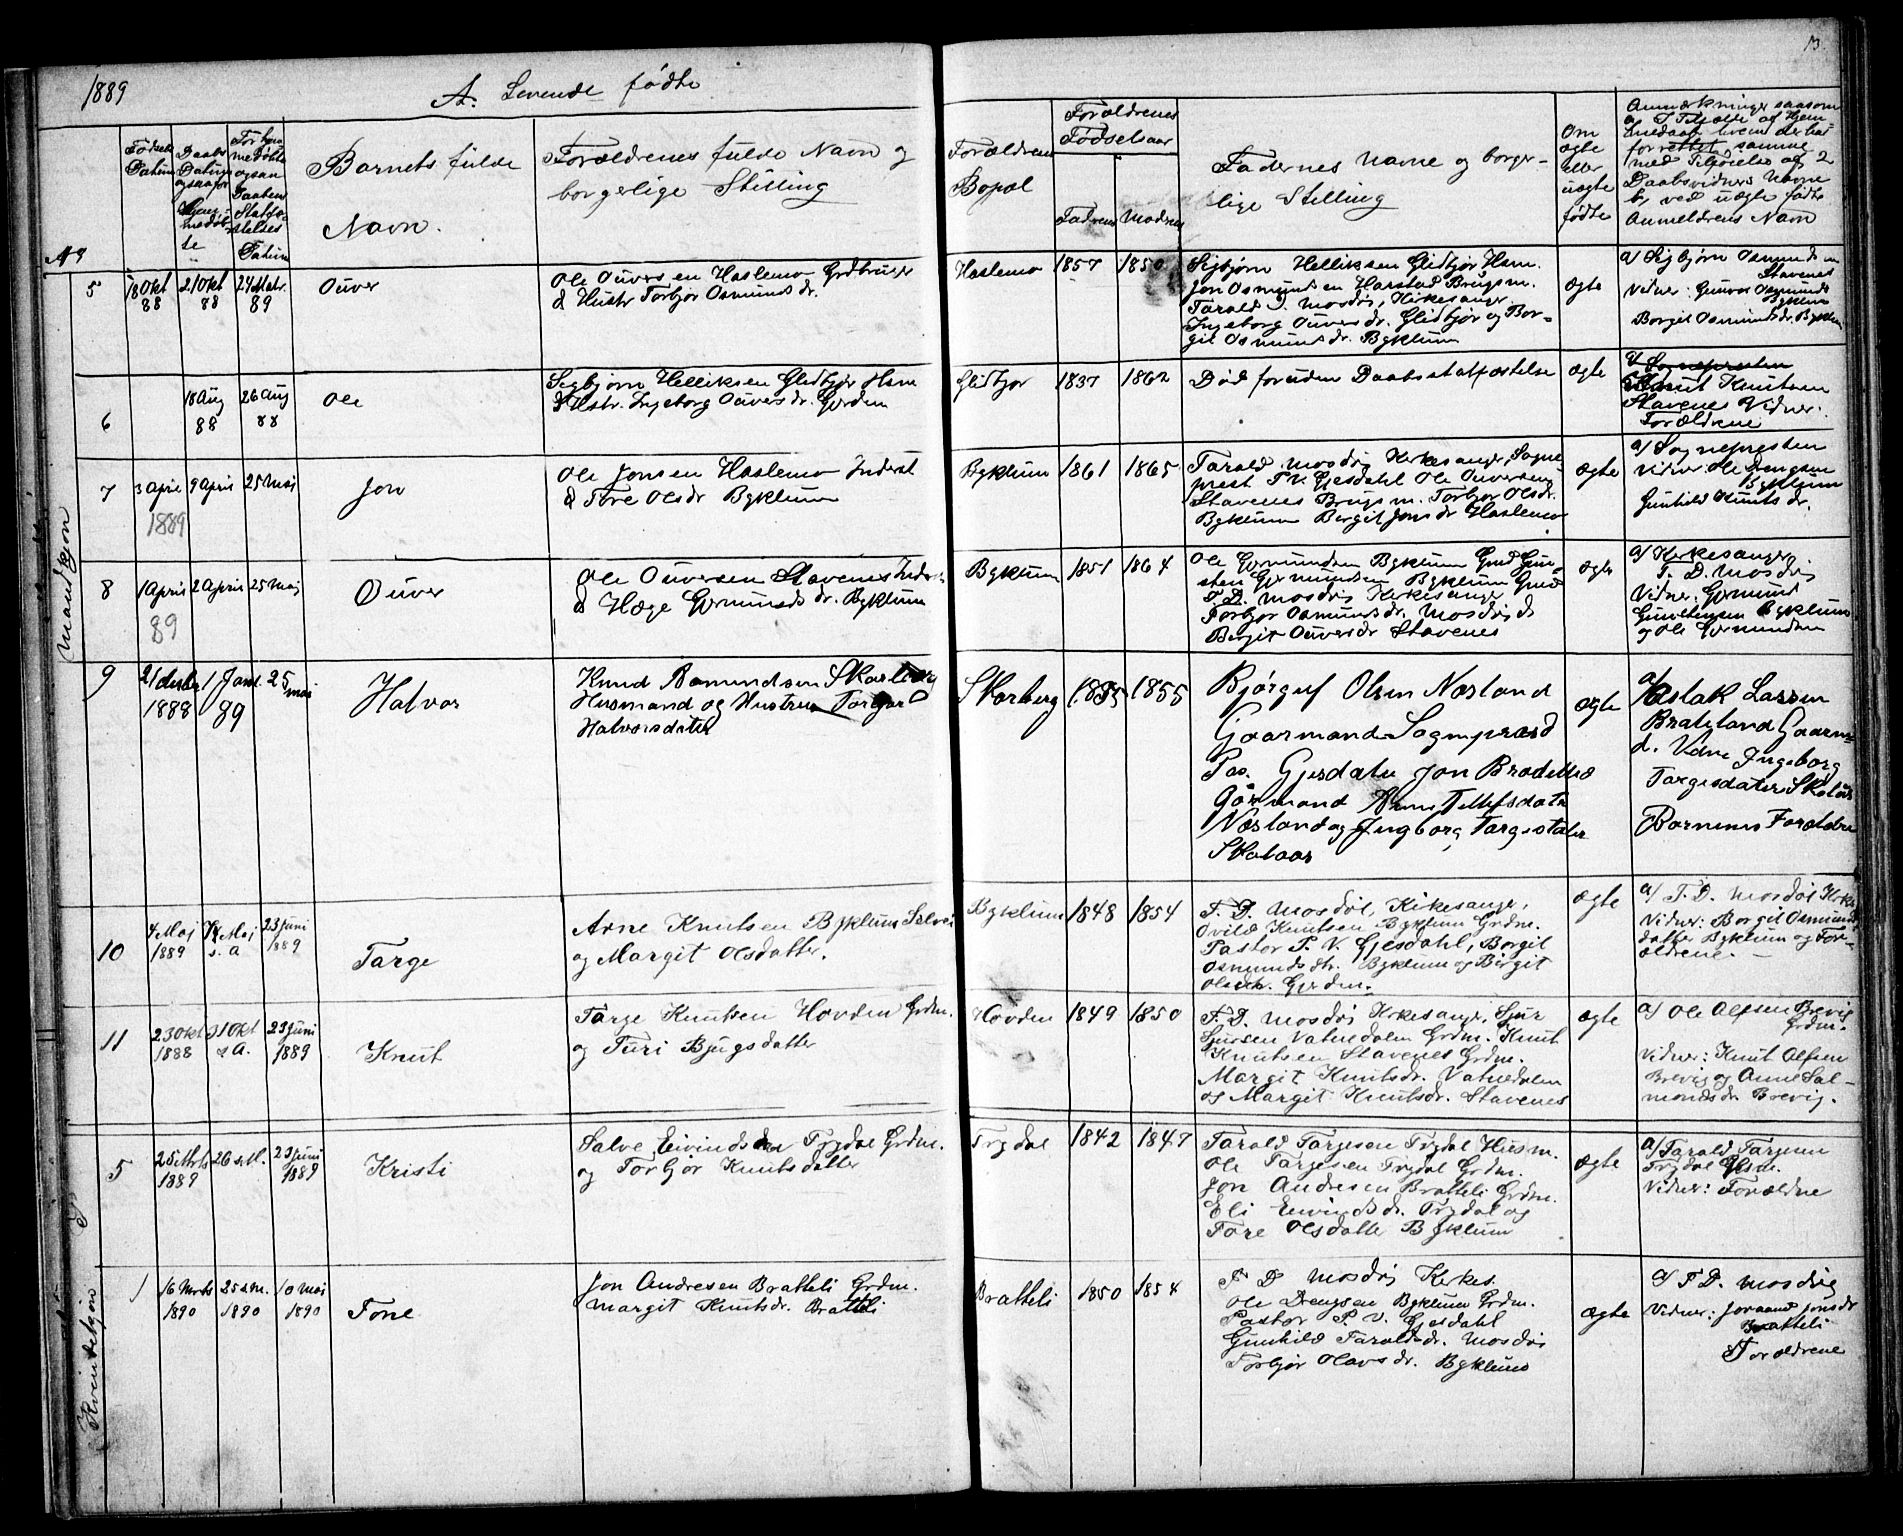 1889
A. Levende fødte
13.
No
Fødsels
Datum
Daabs
Datum
Barnets fulde
Navn.
Forældrenes fulde Navn og
borgerlige Stilling
Forældrenes
Bopæl
Forældrenes
Fødselsaar
Fadrens
Modrens
Fadernes Navne og borger-
lige Stilling
Om
ægte
eller
uægte
fødte
Anmærkninger saasom
med Tilføielse af 2
Daabsvidners Navne
b, ved uægte fødte
Anmelderens Navn
Mandkjøn
5
18 Okt
88
21 Okt
88
24 Mar.
89
Ouver
Ole Ouversen Haslemo Grdbruger
& Hustr Torbjør Osmundsdr.
Haslemo
1857
1850
Sigbjørn Helliksen Glidbjør Hsm.
Jon Osmundsen Harstad Brugsm.
Tarald D. Mosdøi, Kirkesanger
Ingeborg Ouversdr. Glidbjør og Bor-
git Osmundsdr. Byklum
ægte
a/ Sigbjørn Osmundsen
Stavenes
Vidner: Gunvor Osmundsdr
Byklum
Borgit Osmundsdr. Byklum
6
18 Aug
88
26 Aug
88
Ole
Sigbjørn Helliksen Glidbjør Hsm
& Hstr. Ingeborg Ouversdr. Gjerden
Glidbjør
1837
1862
Død foruden Daabsstatfæstelse
ægte
a/ Sognepresten
Knut Knutsen
Stavenes Vidner:
Forældrene
7
3 April
1889
9 April
25 Mai
Jon
Ole Jonsen Haslemo Inderst
& Tore Olsdr Byklum
Byklum
1861
1865
Tarald Mosdøi Kirkesanger, Sogne-
prest P. V. Gjesdahl Ole Ouversen
Stavenes Brugsm. Torbjør Olsdr.
Byklum Bergit Jonsdr Haslemo
ægte
a/ Sognepresten
Vidner: Ole Drengsen
Byklum
Gunhild Knuts dr.
8
1 April
89
2 April
25 Mai
Ouver
Ole Ouversen Stavenes Inderst
& Hæge Gjermunds dr. Byklum
Byklum
1851
1864
Ole Gjermundsen Byklum Grd Gun-
sten Gjermundsen Byklum Grd
T. D. Mosdøi Kirkesanger
Torbjør Osmundsdr. Mosdøi &
Bergit Ouversdr Stavenes
ægte
a/ Kirkesanger
T. D. Mosdøi
Vidner: Gjermund
Gunstensen Byklum
og Ole Gjermundsen
9
21 desbr
1888
1 Jan.
89
25 mai
Halvor
Knud Aamundsen Skarberg
Husmand og Hustru Torgjør
Halvorsdater
Skarberg
1855
1855
Bjørguf Olsen Nesland
Gaarmand Sogneprest
Pas. Gjesdale Jon Bradeli
Nesland og Ingborg Targesdater
Skolaas
ægte
a/
Aslak Lassen
Brateland Gaarm-
d. Vidne Ingeborg
Targesdater Skolaas
Barnenes Foreldre
10
4 Maj
1889
s. A
23 juni
1889
Targe
Arne Knutsen Byklum Selvei
og Margit Olsdatter.
Byklum
1848
1854
T. D. Mosdøl, Kirkesanger,
Ovild Knutsen Byklum Grdm.
Pastor P. V. Gjesdahl, Borgit
Osmunds dtr. Byklum og Birgit
Olsdtr. Gjerden.
ægte
a/ T. D. Mosdøl Kirke
Vidner: Borgit Osmunds
datter Byklum og For-
ældrene. –
11
23 Okt
1888
31 Okt
s A.
23 juni
1889
Knut
Targe Knutsen Hovden Grdm.
og Turi Bjugsdatter
Hovden
1849
1850
T. D. Mosdøi Kirkesanger, Sjur
Sjursen Vatnedalen Grdm. Knut
Knutsen Stavenes Grdm.
Margit Knutsdr. Vatnedalen
og Margit Knutsdr. Stavenes
ægte
a/ Ole Olsen Brevig
Grdm.
Vidner: Knut Olsen
Brevig og Anne Sal-
mondsdr Brevig.
5
25 Mrts
1889
26 s. M.
23 juni
1889
Kristi
Salve Eivindsen Trydal Grdm.
og Torgjør Knutsdatter
Trydal
1842
1847
Tarald Targesen Trydal Husm.
Ole Targesen Trydal Grdm.
Jon Andresen Bratteli Grdm.
Eli Eivindsdr. Trydal og
Tore Olsdatter Byklum
ægte
a/ Tarald Targesen
Trydal Hsm.
Vidner: Forældrene
Kvindekjøn
1
16 Marts
1890
25 s. M.
1890
10 Mai
1890
Tone
Jon Andresen Bratteli Grdm.
Margit Knutsdr. Bratteli
Bratteli
1850
1854
T D Mosdøi Kirkes.
Ole Drengsen Byklum Grdm.
Pastor P. V. Gjesdahl
Gunhild Taraldsdr. Mosdøi
Torbjør Olavsdr. Byklum
ægte
a/ T D. Mosdøi
Vidner: Joraand Jonsdr
Bratteli
Forældrene